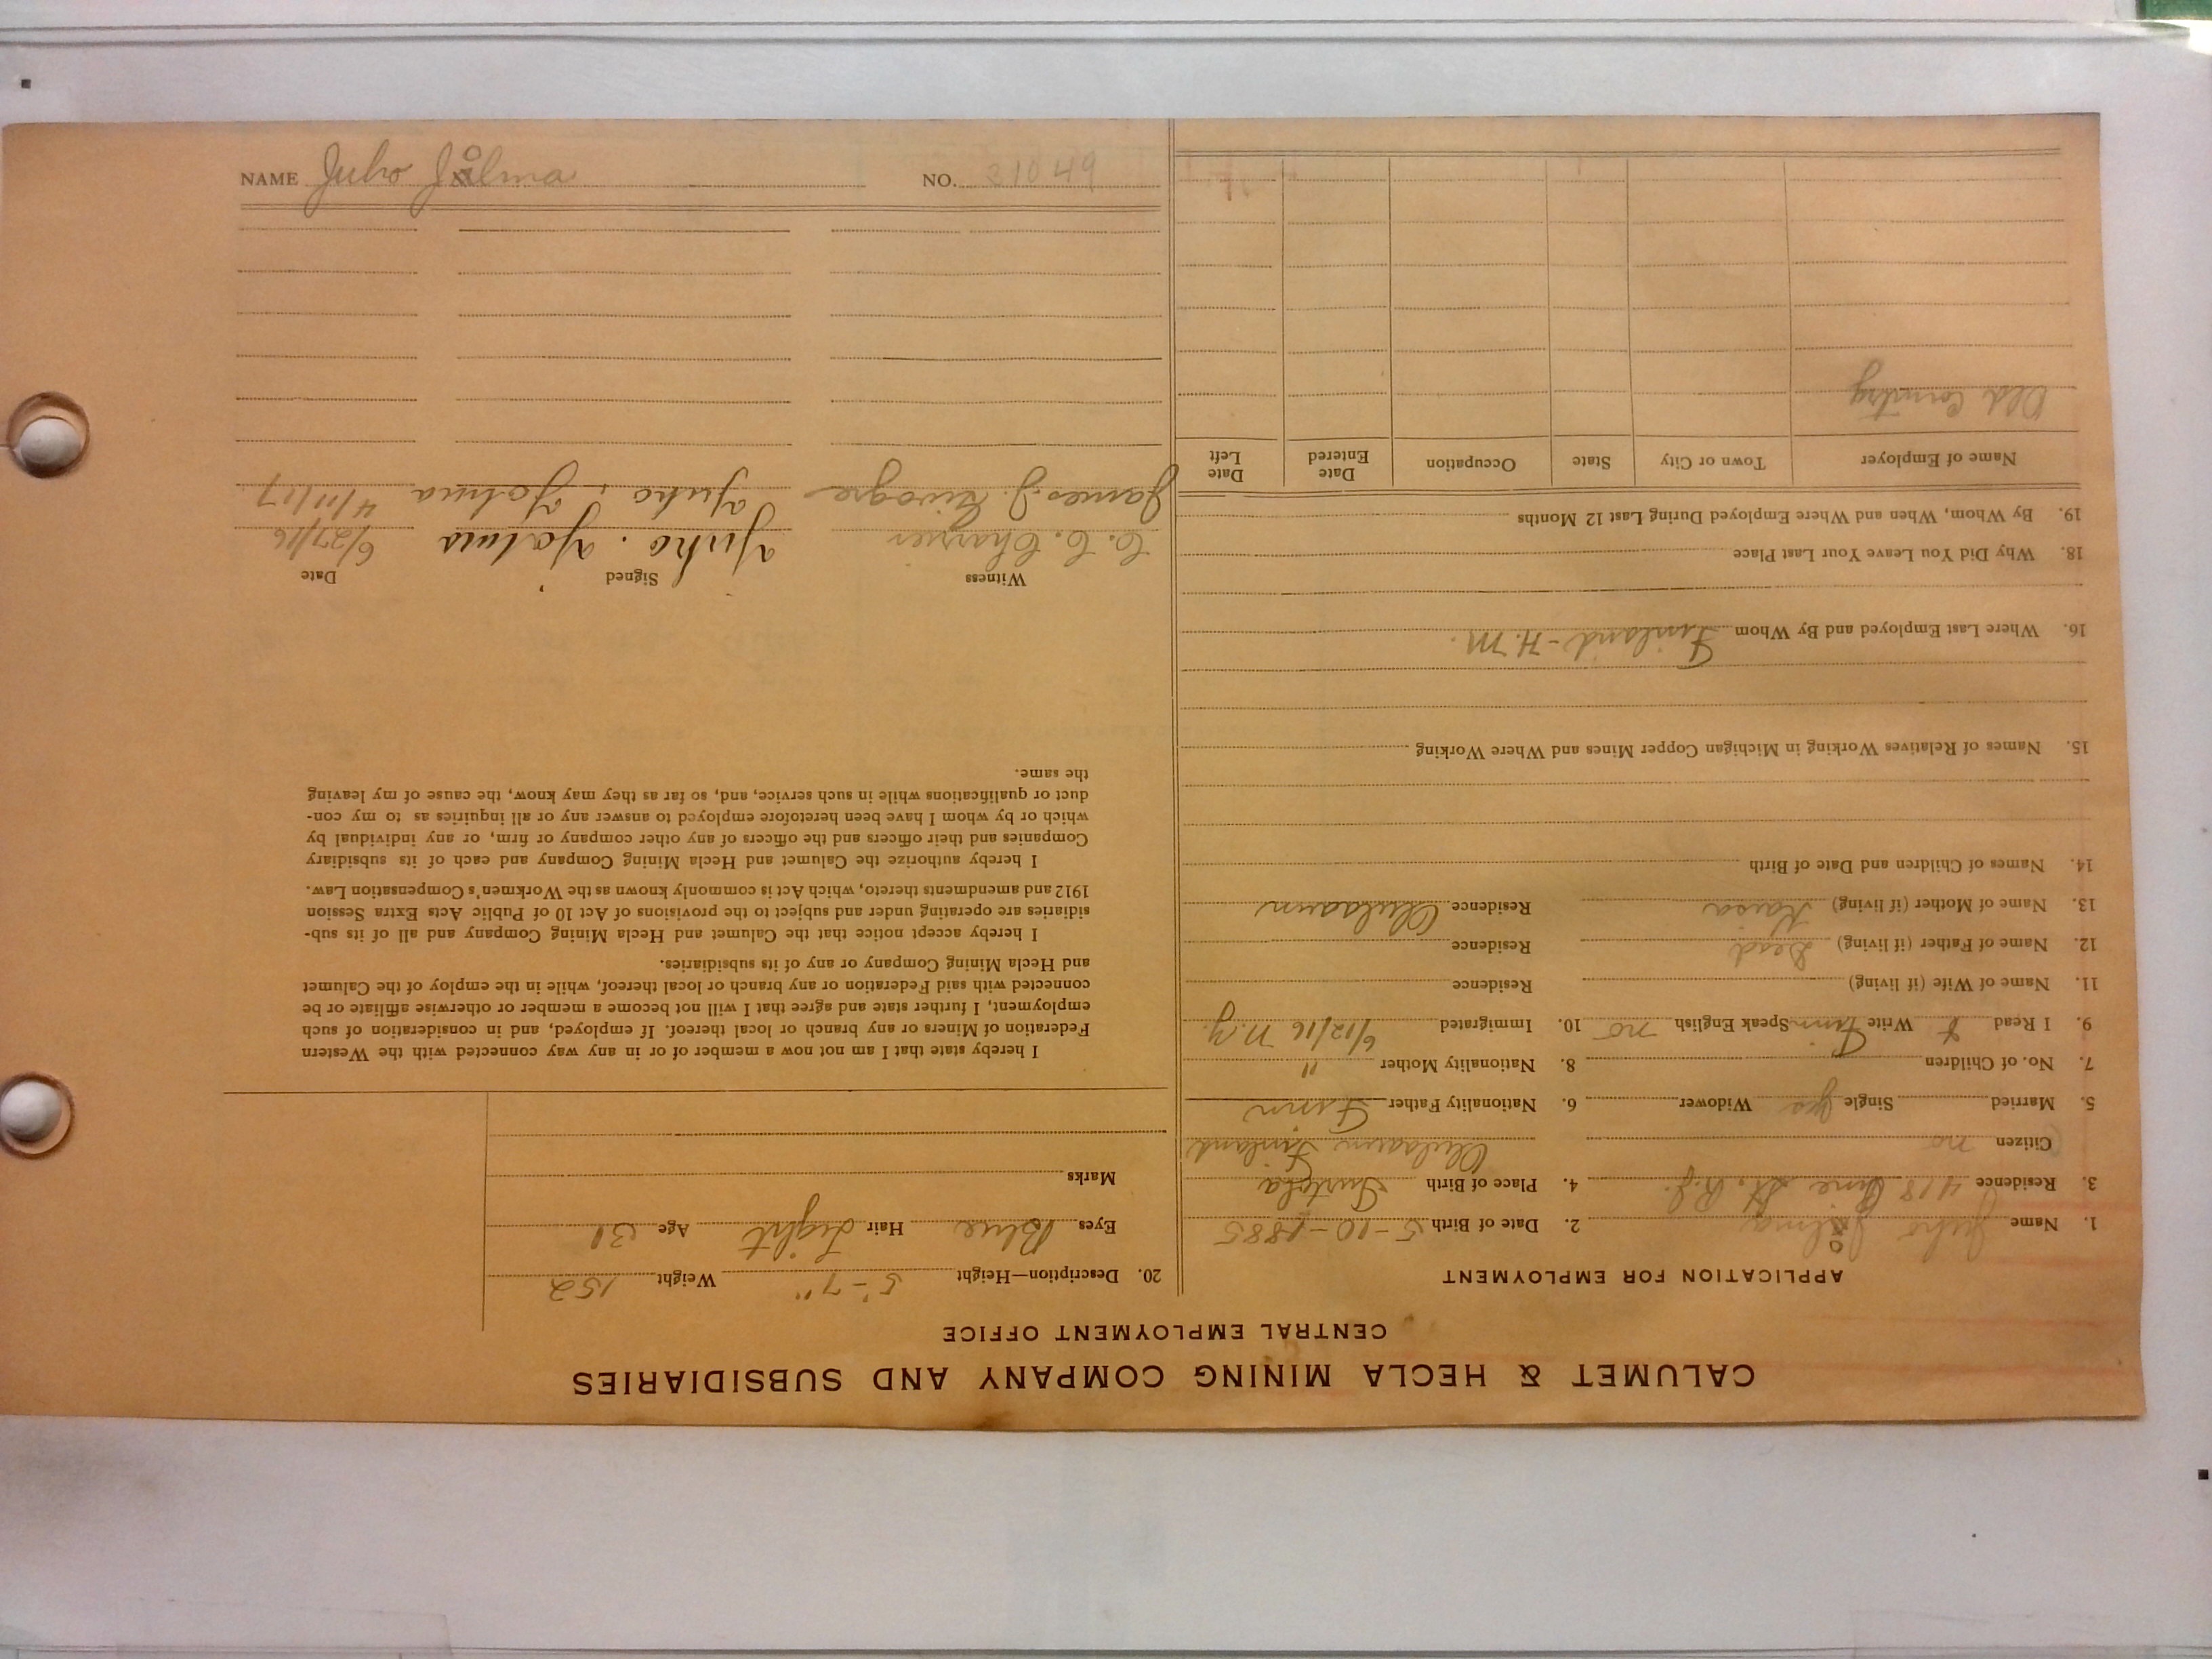 NAME Juho Jolma NO. 31049
CALUMET & HECLA MINING COMPANY AND SUBSIDIARIES
CENTRAL EMPLOYMENT OFFICE
APPLICATION FOR EMPLOYMENT
1. Name Juho Jolma 2. Date of Birth 5-10-1885
3. Residence 418 Pine St. R.J. 4. Place of Birth
Citizen no Finland
5. Married Single yes Widower 6. Nationality Father Finn
7. No. of Children 8. Nationality Mother "
9. I Read & Write Finn Speak English no 10. Immigrated 6/12/16 N.Y.
11. Name of Wife (if living) Residence
12. Name of Father (if living) Dead Residence
13. Name of Mother (if living) Kaisa Residence
14. Names of Children and Date of Birth
15. Names of Relatives Working in Michigan Copper Mines and Where Working
16. Where Last Employed and By Whom Finland - H.M.
18. Why Did You Leave Your Last Place
19. By Whom, When and Where Employed During Last 12 Months
Name of Employer Town or City State Occupation Date Entered Date Left
Old Country
20. Description—Height 5'-7" Weight 152
Eyes Blue Hair Light Age 31
Marks
I hereby state that I am not now a member of or in any way connected with the Western
Federation of Miners or any branch or local thereof. If employed, and in consideration of such
employment, I further state and agree that I will not become a member or otherwise affiliate or be
connected with said Federation or any branch or local thereof, while in the employ of the Calumet
and Hecla Mining Company or any of its subsidiaries.
I hereby accept notice that the Calumet and Hecla Mining Company and all of its sub-
sidiaries are operating under and subject to the provisions of Act 10 of Public Acts Extra Session
1912 and amendments thereto, which Act is commonly known as the Workmen's Compensation Law.
I hereby authorize the Calumet and Hecla Mining Company and each of its subsidiary
Companies and their officers and the officers of any other company or firm, or any individual by
which or by whom I have been heretofore employed to answer any or all inquiries as to my con-
duct or qualifications while in such service, and, so far as they may know, the cause of my leaving
the same.
Witness Signed Date
C. C. Juho 6/27/16
James J. Juho Jolma 4/11/17